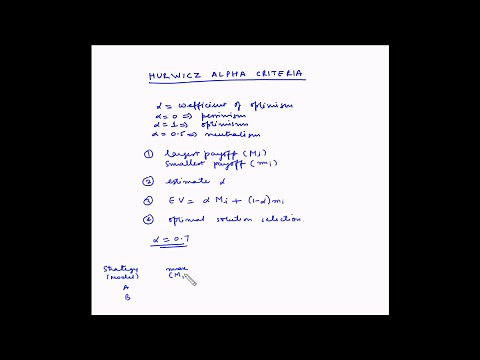 HURWICZ ALPHA CRITERIA
α = coefficient of optimism
α = 0 => pessimism
α = 1 => optimism
α = 0.5 => neutralism
① largest payoff (Mi)
smallest payoff (mi)
② estimate α
③ EV = α Mi + (1-α) mi
④ optimal solution selection.
α = 0.7
Strategy max
(model) (Mi
A
B